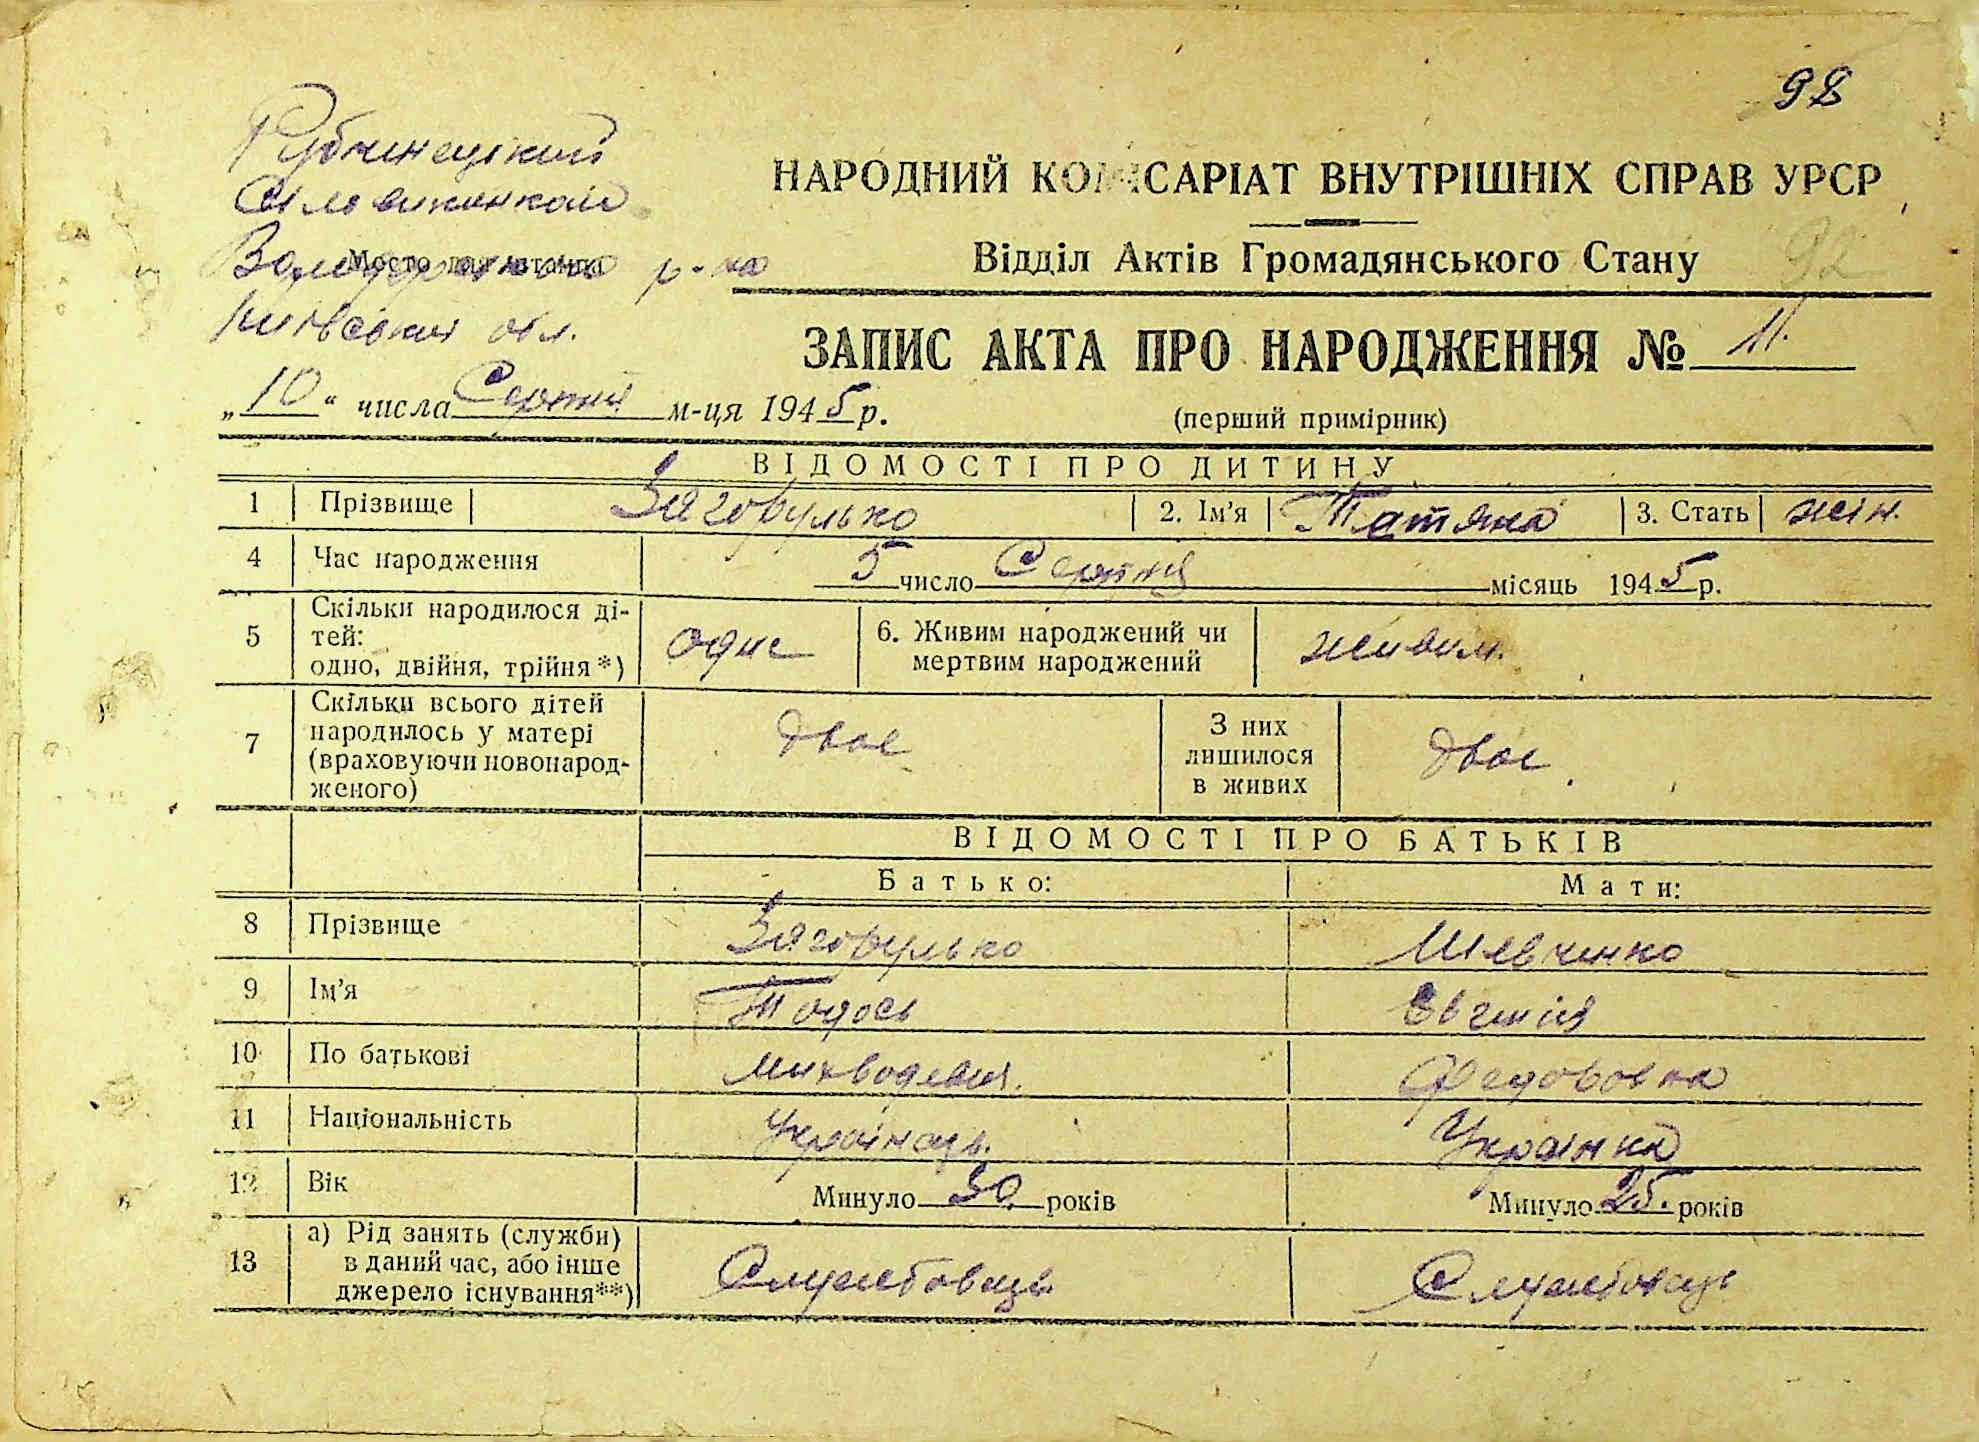 98
Рубченецький
Сільвиконком
Володарського р-на
Місто для штампа
Київськии обл.
НАРОДНИЙ КОМІСАРІАТ ВНУТРІШНІХ СПРАВ УРСР
Відділ Актів Громадянського Стану
92
ЗАПИС АКТА ПРО НАРОДЖЕННЯ № 11.
„10“ числа Серпня м-ця 1945 р.
(перший примірник)
ВІДОМОСТІ ПРО ДИТИНУ
1 Прізвище Загорулько 2. Ім’я Татяна 3. Стать жін.
4 Час народження 5 число Серпня місяць 1945 р.
5 Скільки народилося ді-
тей:
одно, двійня, трійня*) одне 6. Живим народжений чи
мертвим народжений живим.
7 Скільки всього дітей
народилось у матері
(враховуючи новонарод-
женого) двоє З них
лишилося
в живих двоє.
ВІДОМОСТІ ПРО БАТЬКІВ
Батько: Мати:
8 Прізвище Загорулько Шевченко
9 Ім’я Тодось Євгенія
10 По батькові Федоровна
11 Національність Українець. Українка
12 Вік Минуло 30. років Минуло 25. років
13 а) Рід занять (служби)
в даний час, або інше
джерело існування**) Службовець Службовець